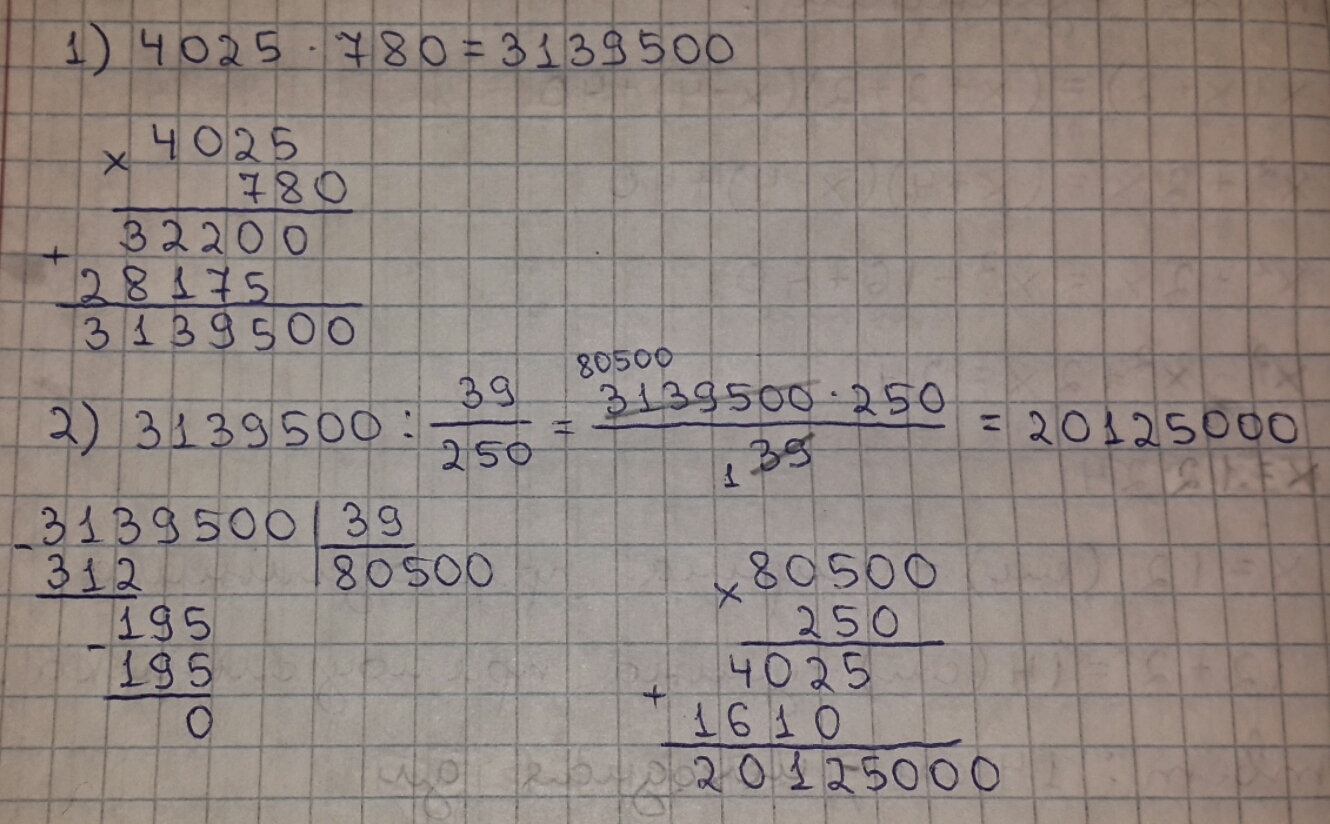 1) 4025 · 780 = 3139500
× 4025
780
32200
+
28175
3139500
80500
2) 3139500 : 39/250 = 3139500 · 250 / 39 = 20125000
1
- 3139500 | 39
312 | 80500
- 195
195
0
× 80500
250
4025
+
1610
20125000